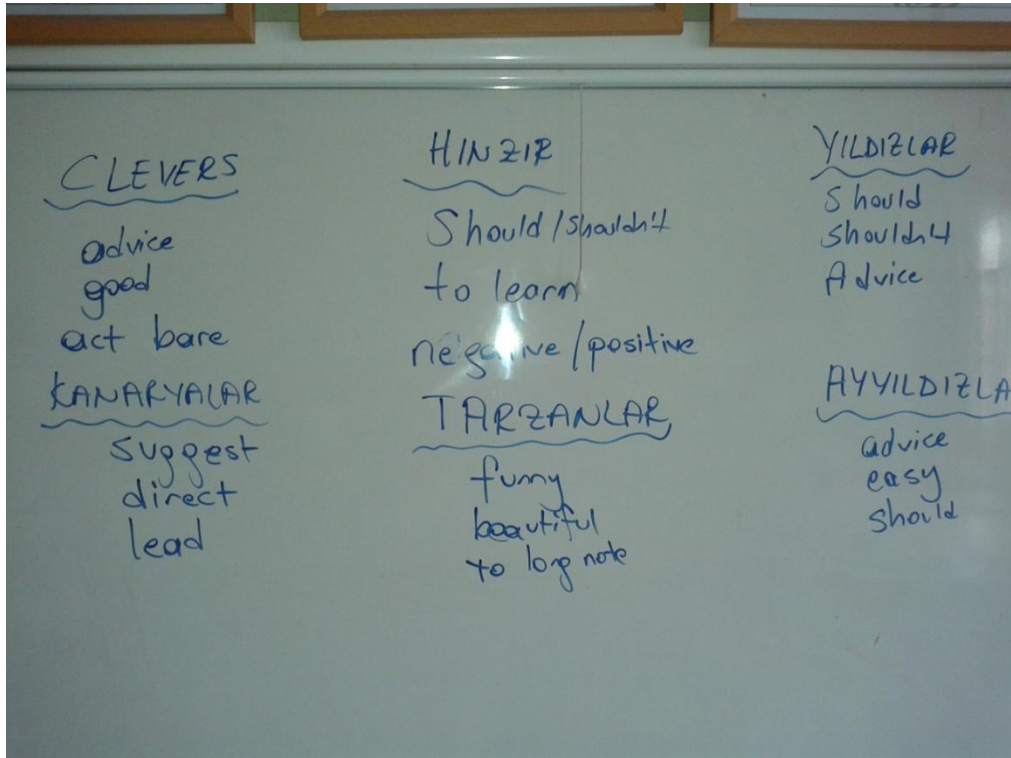 CLEVERS
advice
good
act bare
KANARYALAR
suggest
direct
lead
HINZIR
Should/shouldn't
to learn
negative/positive
TARZANLAR
funny
beautiful
to long note
YILDIZLAR
Should
shouldn't
Advice
AYYILDIZLA
advice
easy
should